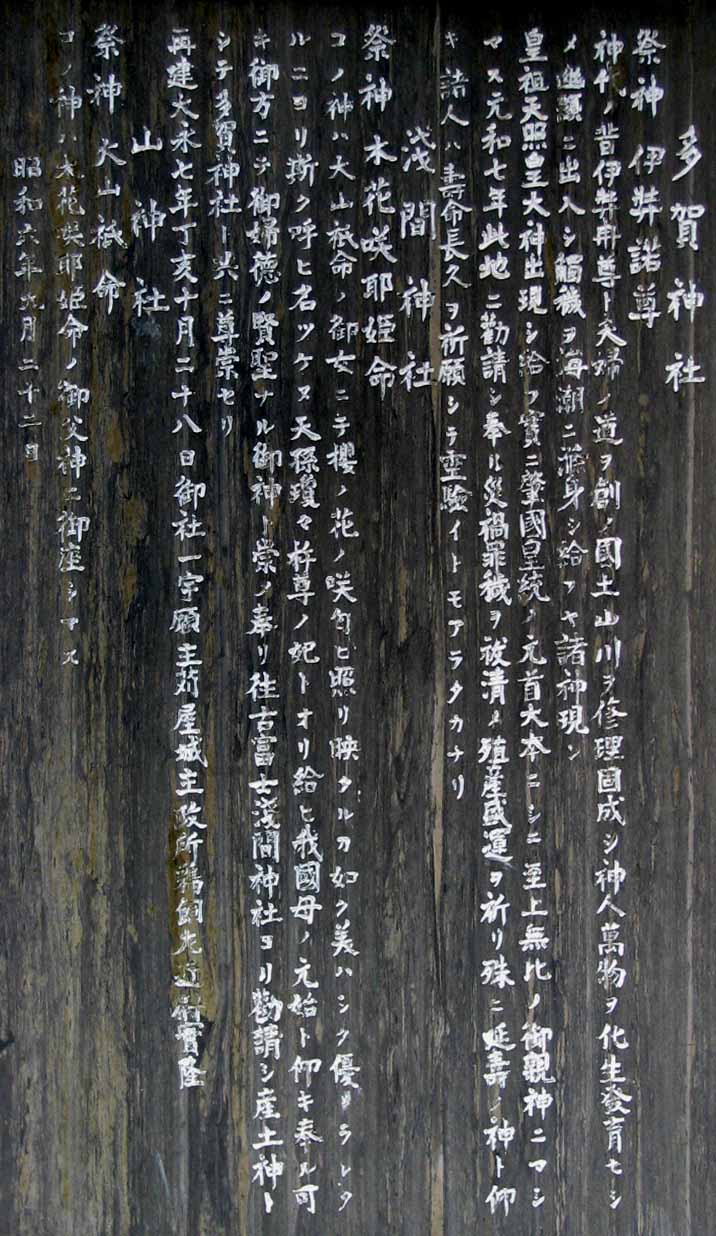 多賀神社
祭神 伊弉諾尊
神代ノ昔伊弉冊尊ト夫婦ノ道ヲ創メ國土山川ヲ修理固成シ神人萬物ヲ化生發育セシ
メ幽顯ニ出入シ觸穢ヲ海潮ニ滌身シ給フヤ諸神現ン
皇祖天照皇大神出現シ給フ實ニ肇國皇統ノ元首大本ニシニ至上無比ノ御親神ニマシ
マス元和七年此地ニ勸請シ奉ル災禍罪穢ヲ祓清メ殖産盛運ヲ祈リ殊ニ延壽ノ神ト仰
キ諸人ハ壽命長久ヲ祈願シテ霊驗イトモアラタカナリ
淺間神社
祭神木花咲耶姫命
コノ神ハ大山祇命ノ御女ニテ櫻ノ花ノ咲匂ヒ照リ映タルカ如ク美ハシク優リラレタ
ルニヨリ斯ク呼ヒ名ツケヌ天孫瓊々杵尊ノ妃トオリ給ヒ我國母ノ元始ト仰キ奉ル可
キ御方ニテ御婦德ノ賢聖ナル御神ト崇メ奉リ往古富士淺間神社ヨリ勸請シ産土神ト
シテ多賀神社ト共ニ尊崇セリ
再建大永七年丁亥十月二十八日御社一宇願主苅屋城主政所鵜飼左近尉實隆
山神社
祭神大山祇命
コノ神ハ木花咲耶姫命ノ御父神ニ御座シマス
昭和六年九月二十二日